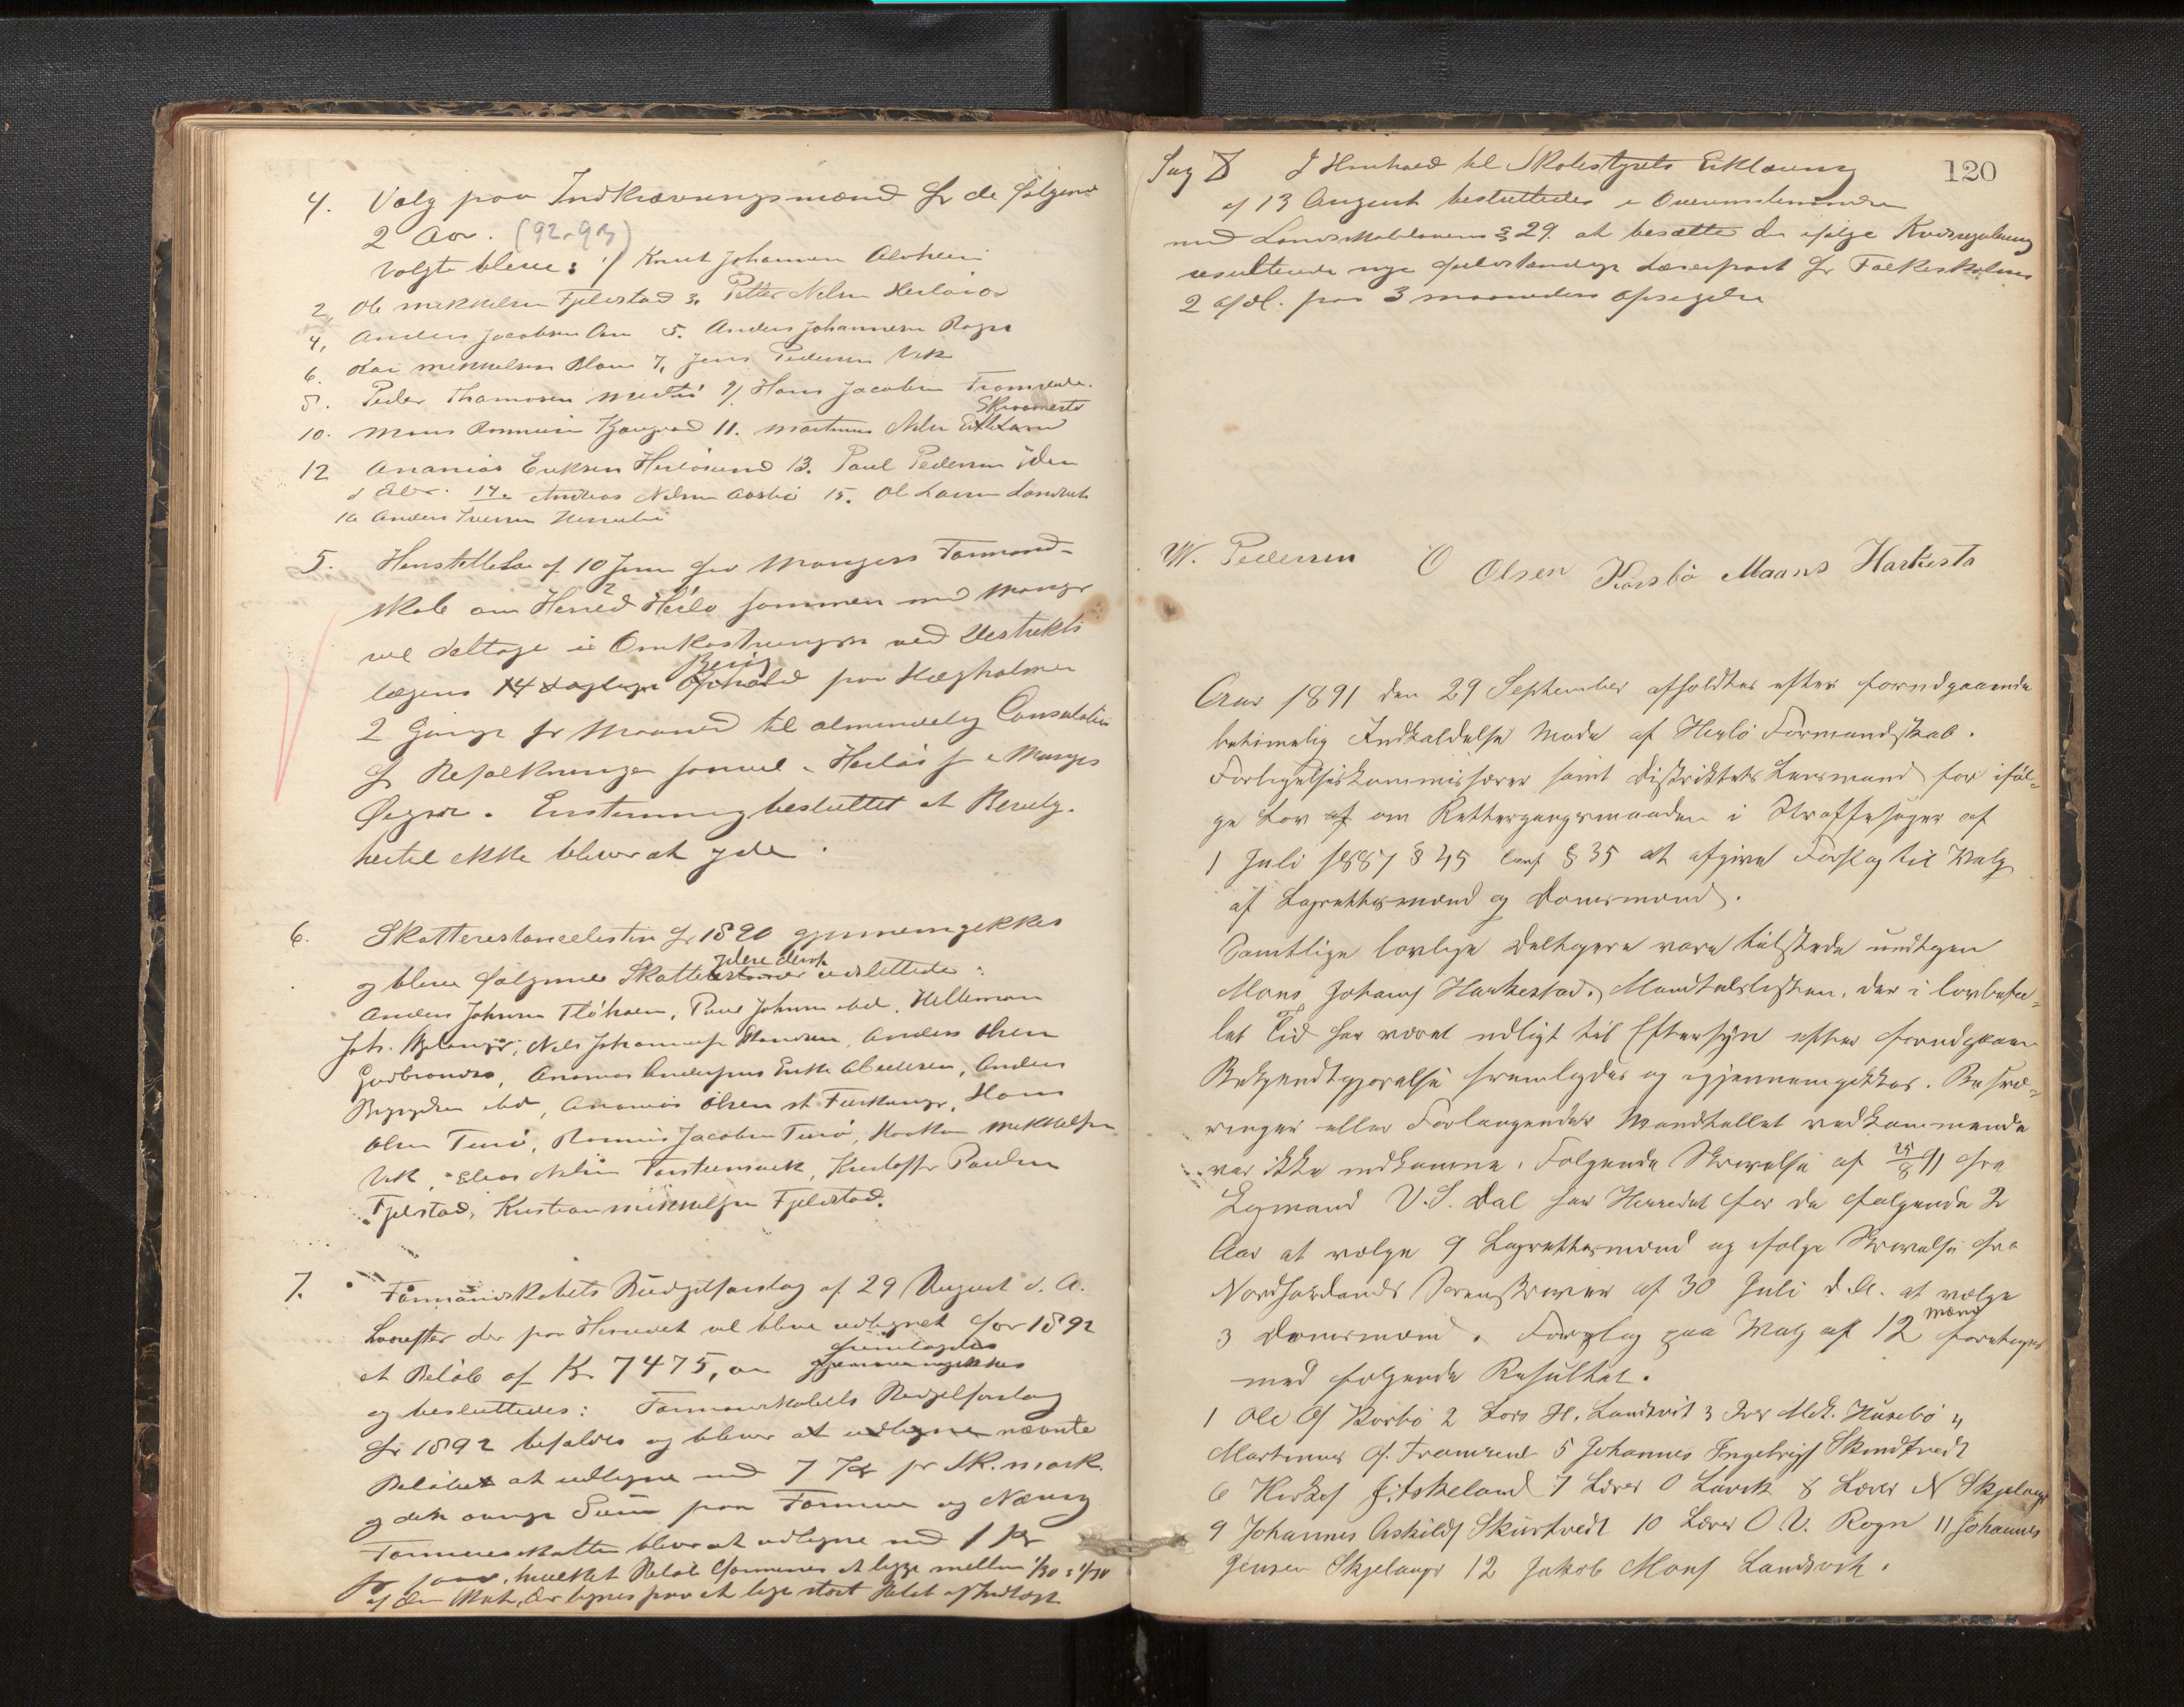 4. Valg paa Indkrævningsmænd for de følgende
2 Aar. (92-93)
Valgte bleve: 1/ Knut Johannesen Alvheim
2, Ole Mikkelsen Fjeldstad 3, Petter Nelsen Herløiør
4, Anders Jacobsen 5. Anders Johannesen Rogn
6. Mikkelsen 7, Jens Pedersen Vik
8. Peder Thomasen 9/ Hans Jacobsen Tromsende.
10. Mons Rasmusen 11. Martinus Nelsen Skraamestø
12 Ananias Eriksen Herløsund 13. Paul Pedersen
14. Andreas Nelsen 15. Ole Larsen Landsvik
16 Anders Iversen
5. Henstillelse af 10 Juni fra Mangers Formand-
skab om Herred Herlø sammen med Manger
vil deltage i Omkostningen ved Distrikts
lægens 14 daglige Besøg paa Hægholmen
2 Gange pr Maaned til almindelig Consultation
for Befolkningen saavel i Herlø som i Manger
. Enstemmig besluttet at Bevilg.
hertil ikke bliver at yde.
6. Skatterestancelisten for 1890 gjennemgikkes
og bleve følgende Skatteydere udslettede:
Anders Johnsen Fløksen, Paul Johnsen ibd. Hellemann
Joh. , Nils Johannesen , Anders Olsen
, Ananias Andersens Enke , Anders
ibd, Ananias Olsen , Hans
Olsen Turø, Rasmus Jacobsen Turø, Haakon Mikkelsen
Vik, Elias Nelsen , Kristoffer Paulsen
Fjelstad, Kristian Mikkelsen Fjeldstad.
7. Formandskabets Budgetforslag af 29 August d. A.
hvorefter der paa Herredet vil blive udlignet for 1892
et Beløb af Kr 7475, fremlagdes
og besluttedes: Formandskabets Budgetforslag
for 1892 befaldes og bliver nævnte
Beløb at udligne med 7 Kr pr Sk.mark.
og den øvrige Sum paa Formue og Næring
Formuesskatten bliver at udligne med 1 Kr
, hvilket Beløb formenes at ligge mellem 1/30 : 1/70
af den Skat, der lignes paa et lige stort Beløb af Indtægt
120
Sag 8 I Henhold til Skolestyrets Erklæring
af 13 August besluttedes i Overensstemmelse
med Landsskolelovens § 29. at besætte den ifølge Kredsregulering
resulterende nye selvstændige Lærerpost for Folkeskolens
2 afdl. paa 3 maaneders Opsigelse
W. Pedersen O Olsen Kårsbø Maans Harkestø
Aar 1891 den 29 September afholdtes efter forudgaaende
betimelig Indkaldelse Møde af Herlø Formandskab.
Forligelseskommissærer samt Distriktets Lensmand for iføl-
ge Lov af om Rettergangsmaaden i Straffesager af
1 Juli 1887 § 45 conf § 35 at afgive Forslag til Valg
af Lagrettesmænd og Domsmænd.
Samtlige lovlige Deltagere vare tilstede undtagen
Mons Johans Harkestad. Mandtalslisten, der i lovbefa-
let Tid har været udlagt til Eftersyn efter forudgaaen
Bekjendtgjørelse fremlagdes og gjennemgikkes. Besvæ-
ringer eller Forlangender Mandtallet vedkommende
var ikke indkomne. Følgende Skrivelse af 25/8 91 fra
Lagmand V.S. Dal har Herredet for de følgende 2
Aar at vælge 9 Lagrettesmænd og ifølge Skrivelse fra
Nordhordlands Sorenskriver af 30 Juli d.A. at vælge
3 Domsmænd. Forslag paa Valg af 12 Mænd foretoges
med følgende Resultat.
1 Ole O/ Kårbø 2 Lars H. Landsvik 3 Iver Mik. Husebø 4
Martinus O/. Tromsend 5 Johannes Ingebrigs Skurtvedt
6 7 Lærer O Larsk 8 Lærer N Skjelanger
9 Johannes Askilds Skurtvedt 10 Lærer O.V. Rogn 11 Johannes
Jensen Skjelanger 12 Jakob Mons Landsvik.